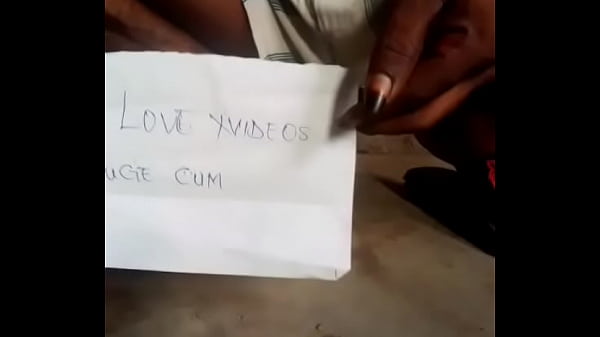 LOVE XVIDEOS
UGE CUM